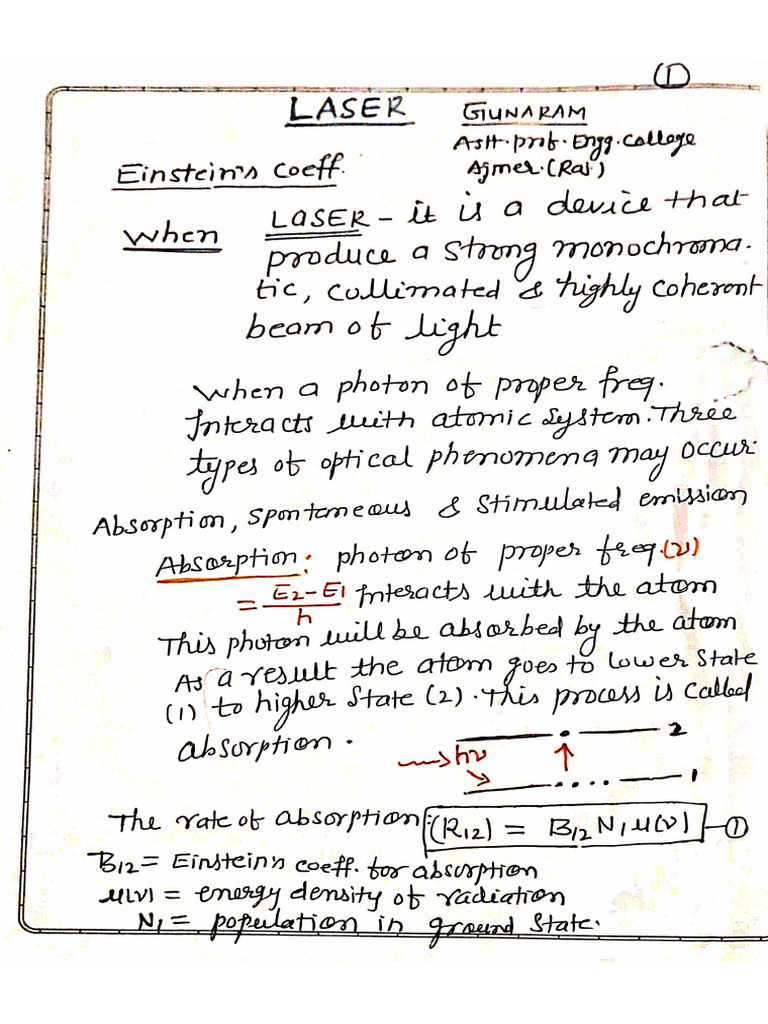 ①
LASER GUNARAM
Astt. prof. Engg. College
Einstein's Coeff. Ajmer. (Raj)
When LASER - it is a device that
produce a strong monochroma-
tic, collimated & highly coherent
beam of light
When a photon of proper freq.
Interacts with atomic system. Three
types of optical phenomena may occur.
Absorption, spontaneous & Stimulated emission
Absorption: photon of proper freq. (ν)
= E2-E1/h Interacts with the atom
This photon will be absorbed by the atom
As a result the atom goes to lower state
(1) to higher State (2). This process is called
absorption.
2
hν
1
The rate of absorption: (R12) = B12 N1 u(ν) - ①
B12 = Einstein's coeff. for absorption
u(ν) = energy density of radiation
N1 = population in ground State.